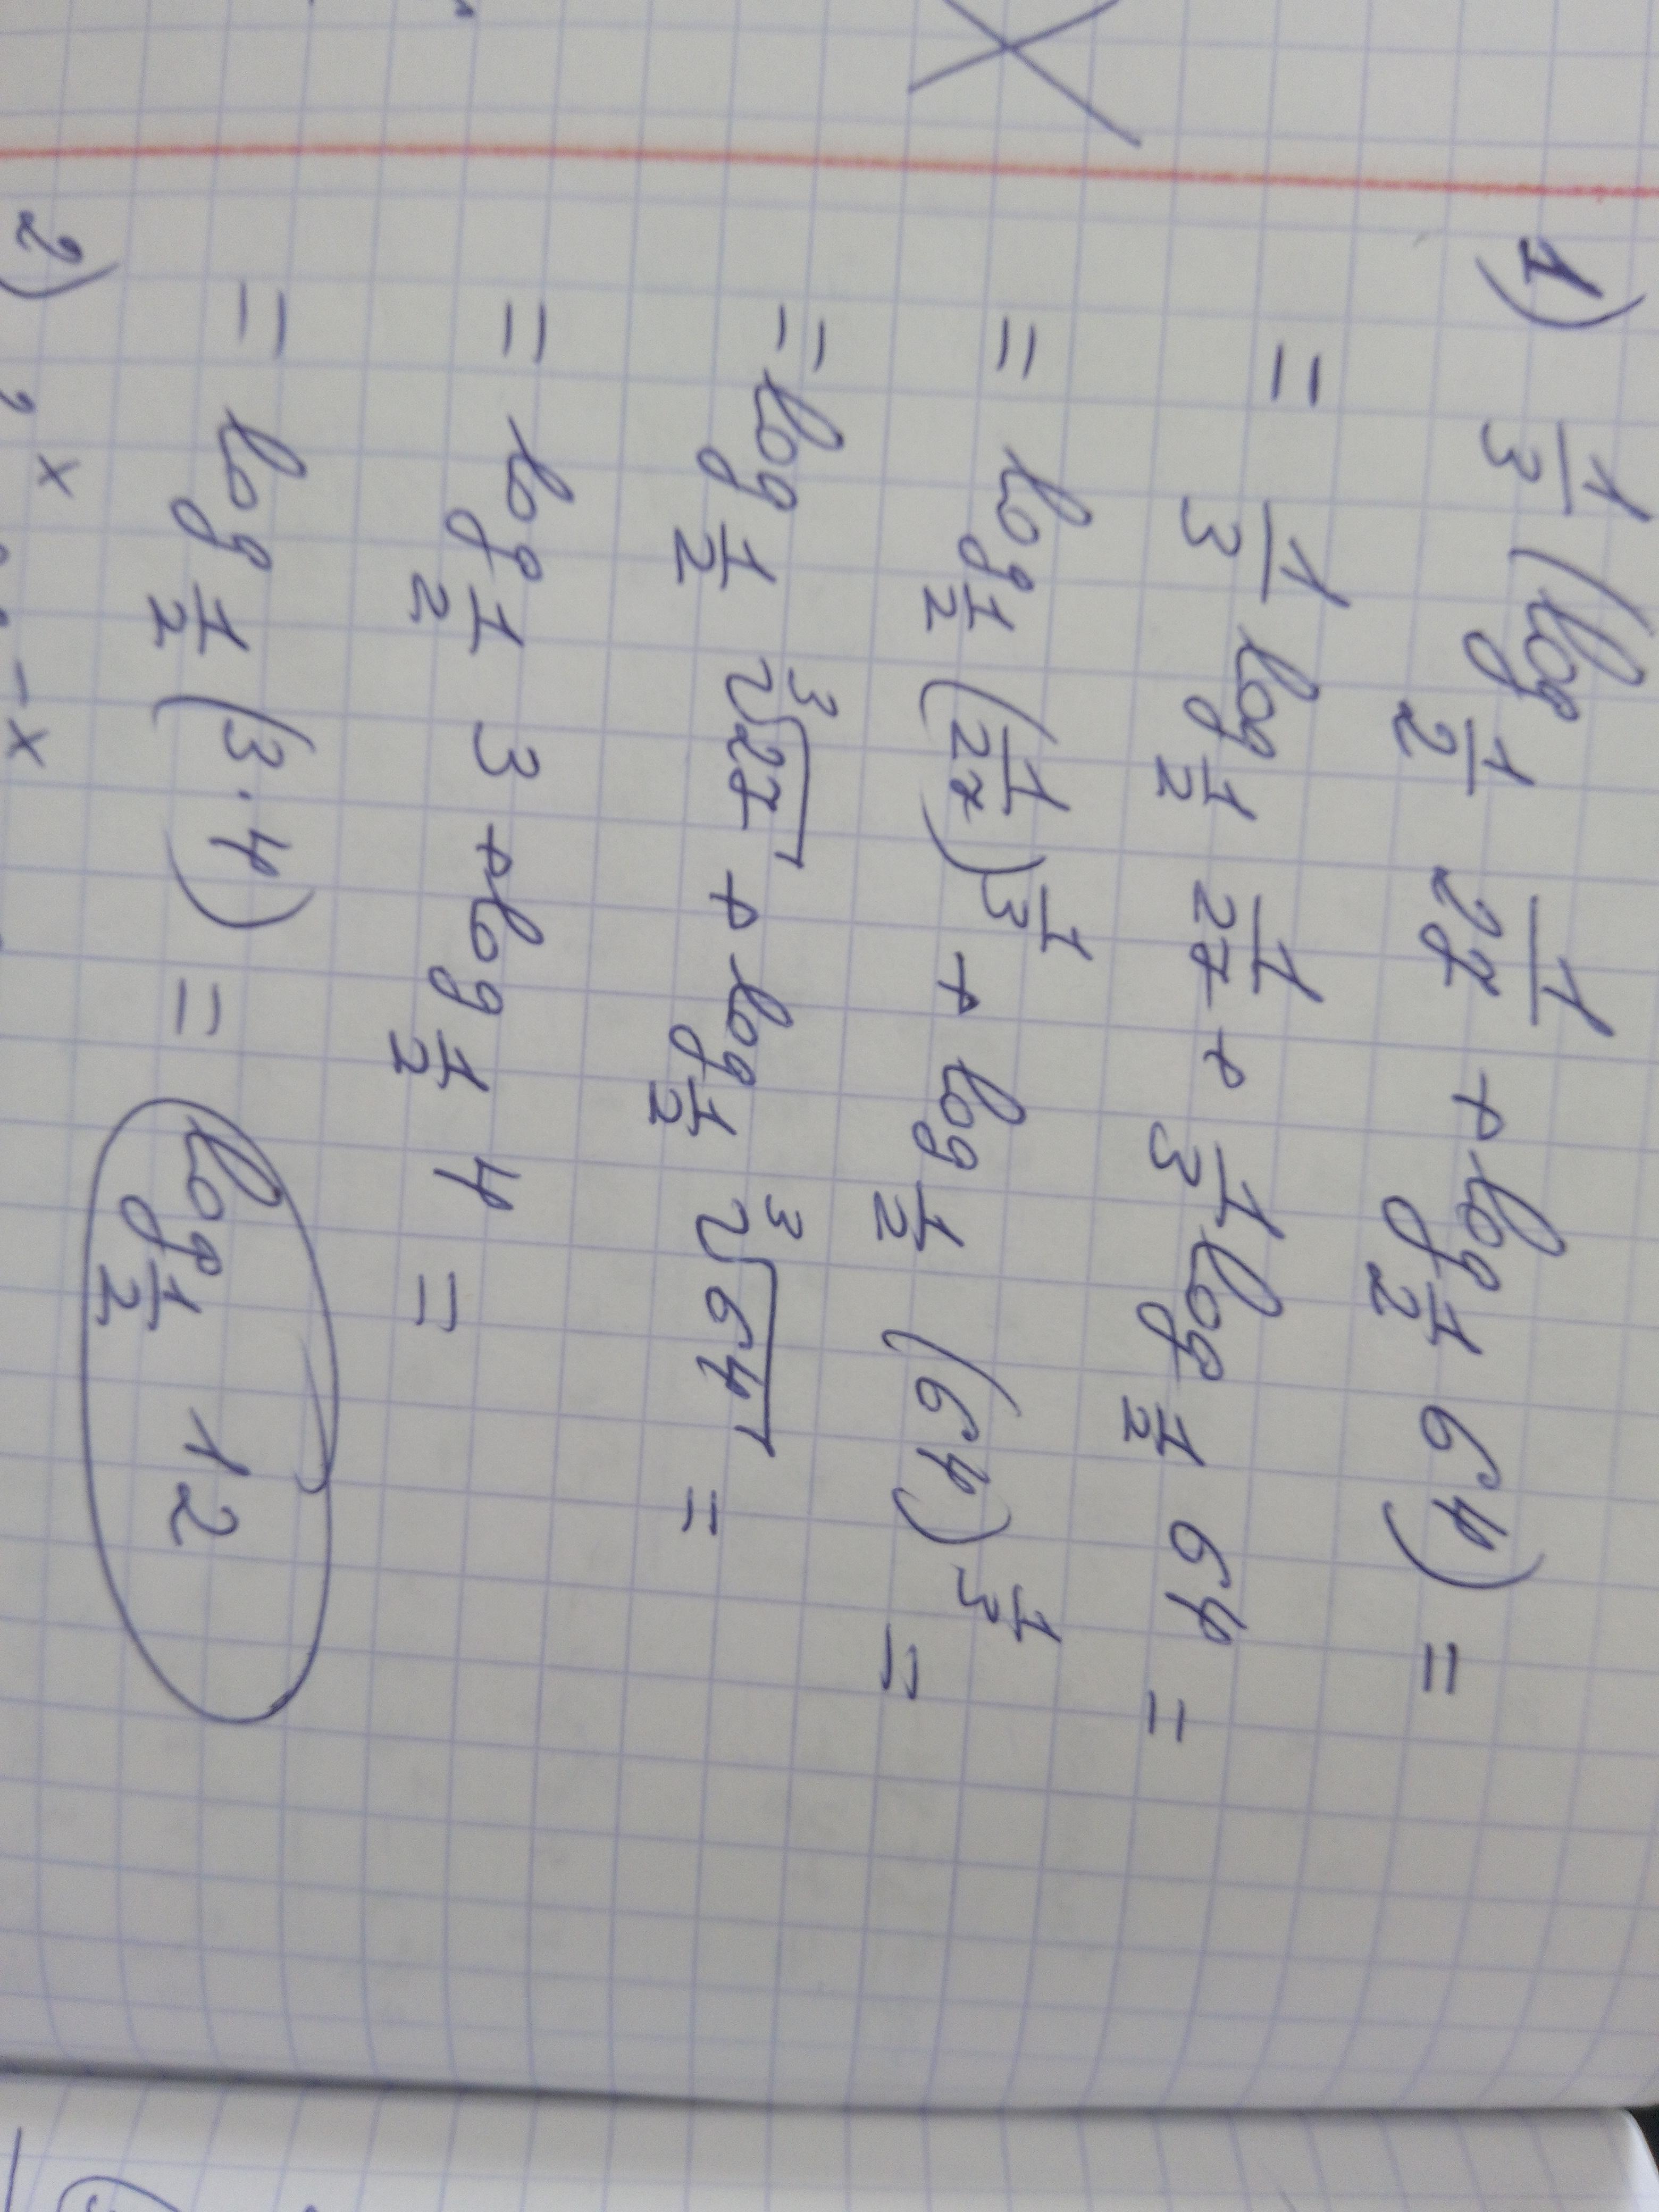 1) 1/3 (log 1/2 1/27 + log 1/2 64) =
= 1/3 log 1/2 1/27 + 1/3 log 1/2 64 =
= log 1/2 (1/27)^1/3 + log 1/2 (64)^1/3 =
= log 1/2 ∛27 + log 1/2 ∛64 =
= log 1/2 3 + log 1/2 4 =
= log 1/2 (3·4) = log 1/2 12
2)